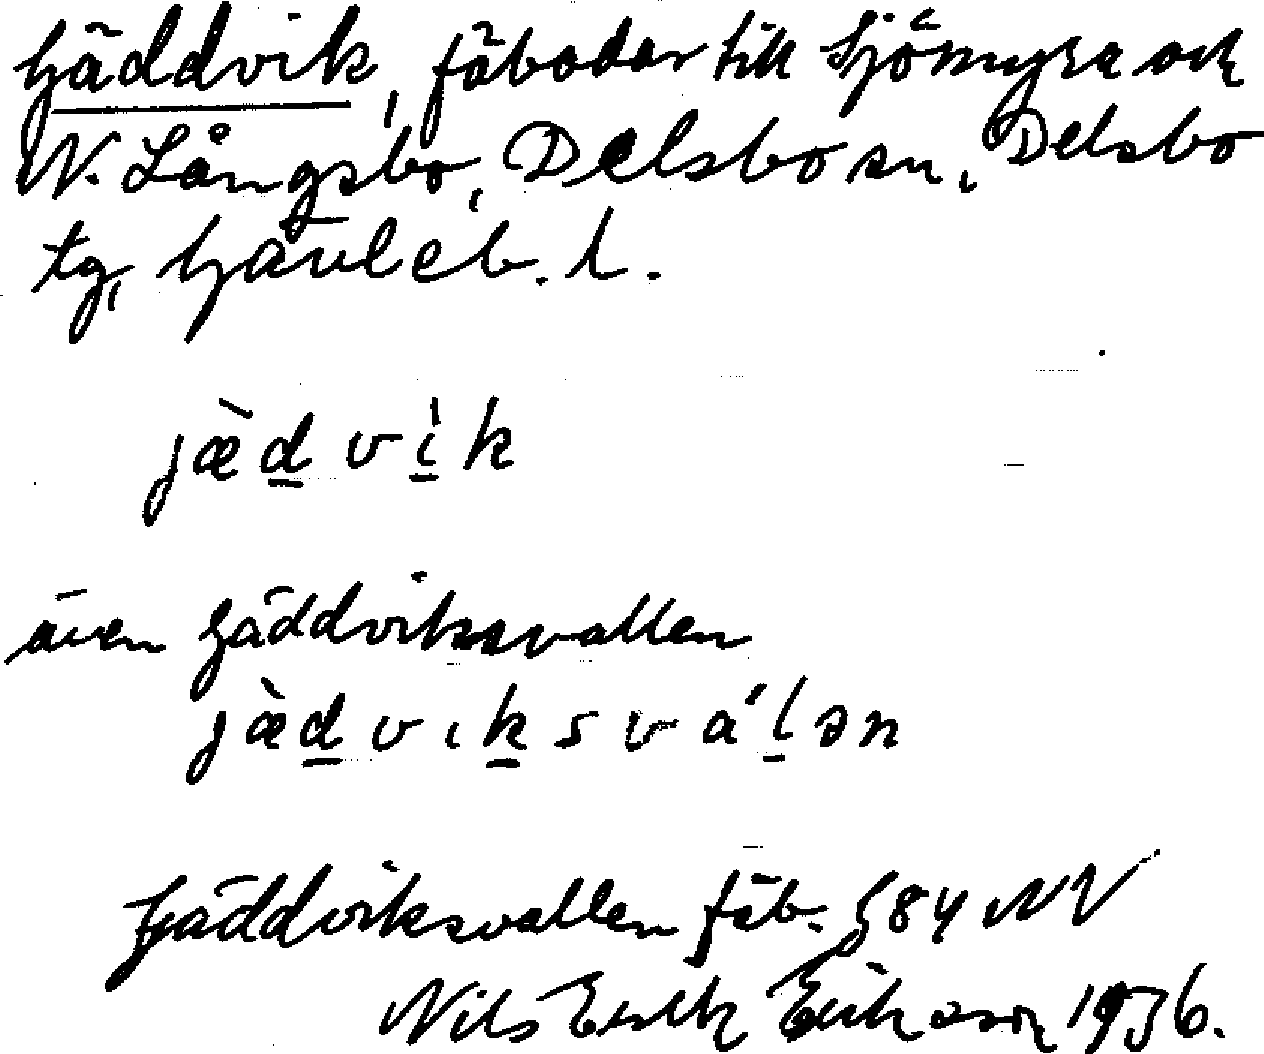 Gäddvik, fäbodar till Sjömyra och
N. Långsbo, Delsbo sn, Delsbo
tg, Gävleb. l.
jæ̀dvı̀k
även Gäddviksvallen
jæ̀dvıksválən
Gäddviksvallen fäb. 84 NV
Nils Erik Erikson 1936.